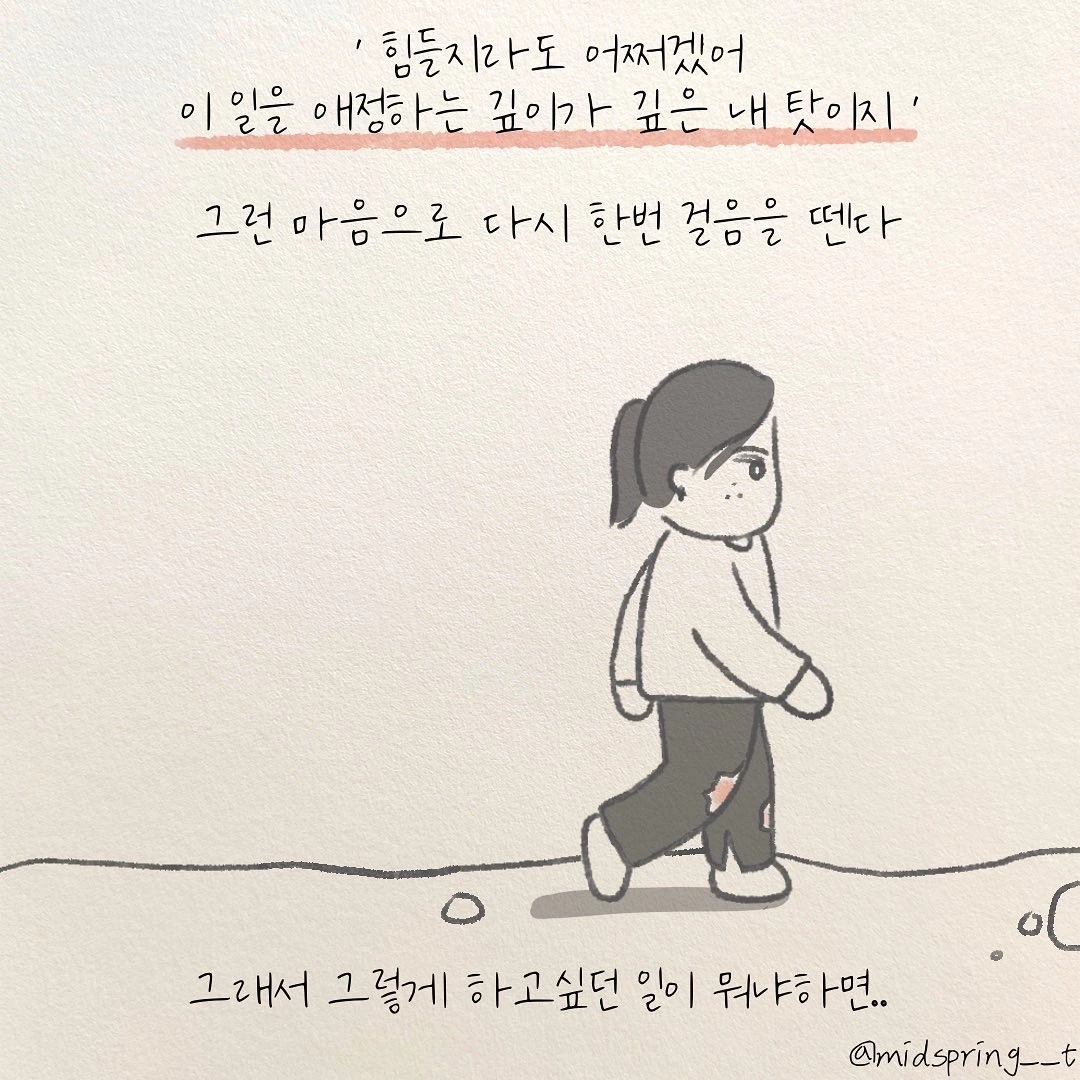 ' 힘들지라도 어쩌겠어
이 일을 애정하는 깊이가 깊은 내 탓이지 '
그런 마음으로 다시 한번 걸음을 뗀다
그래서 그렇게 하고싶던 일이 뭐냐하면..
@midspring__t